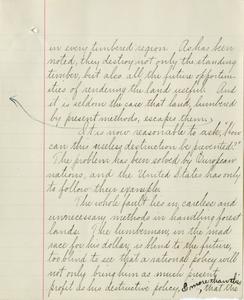 in every timbered region. As has been
noted, they destroy not only the standing
timber, but also all the future opportuni-
ties of rendering the land useful. And
it is seldom the case that land, lumbered
by present methods, escapes them.
It is now reasonable to ask, "How
can this useless destruction be prevented?"
The problem has been solved by European
nations, and the United States has only
to follow their example.
The whole fault lies in careless and
unnecessary methods in handling forest
lands. The lumberman, in the mad
race for his dollar, is blind to the future,
too blind to see that a national policy will
not only bring him as much present
profit as his destructive policy,